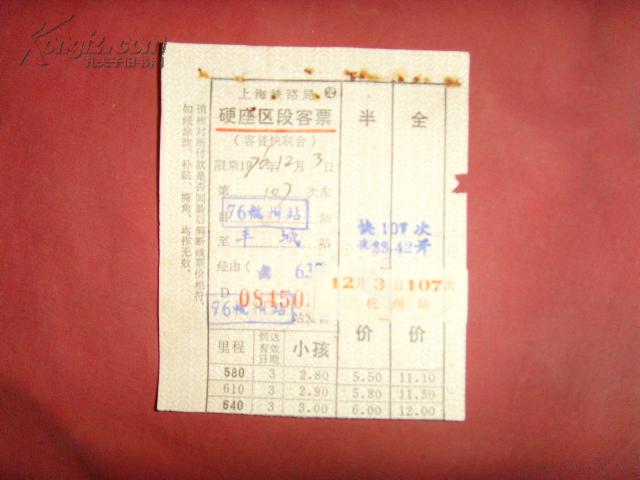 Kongfz.com
孔夫子旧书网
上海铁路局
硬座区段客票
(客普快联合)
限乘1976年12月3日
第 107 次车
自 76杭州站 站
至 丰城 站
经由(
D 08450
76杭州站
站发售
半 全
快107次
23.42开
12月3日107次
杭州站
价 价
里程 到达有效日期 小孩
580 3 2.80 5.50 11.10
610 3 2.90 5.80 11.50
640 3 3.00 6.00 12.00
请核对所付款是否同最后剪断线票价相符,
如经涂改、补贴、撕角,均作无效。